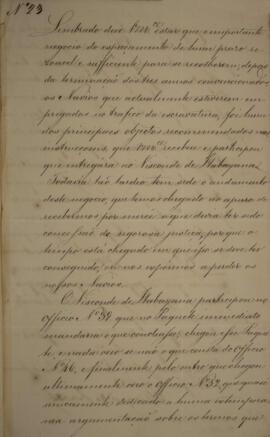 Nº 23
Lembrado deve V.M.ce estar que o importante
negocio do espaçamento de hum prazo ra-
zoavel e sufficiente para se recolherem, depois
da terminação dos tres annos convencionados
os Navios que actualmente estiverem em-
pregados no trafico da escravatura, foi hum
dos principaes objectos recommendados nas
instrucções, que V.M.ce recebeu e participou
que entregára ao Visconde de Itabayana.
Todavia tão tardio tem sido o andamento
deste negocio, que temos chegado ao apuro de
recebermos por mercê o que devera ter sido
concessão de rigorosa justiça, por que o
tempo está chegado em que isso se deve ter
conseguido, ou nos expomos a perder os
nossos Navios.
O Visconde de Itabayana participou no
Officio Nº 39 que no Paquete immediato
mandaria o que concluisse; chegou esse Paque-
te, e nada veio se não o que consta do Officio
Nº 46, e finalmente pelo outro que chegou
ultimamente veio o Officio Nº 52, que quasi
unicamente dedicado a huma
argumentação sobre os termos que